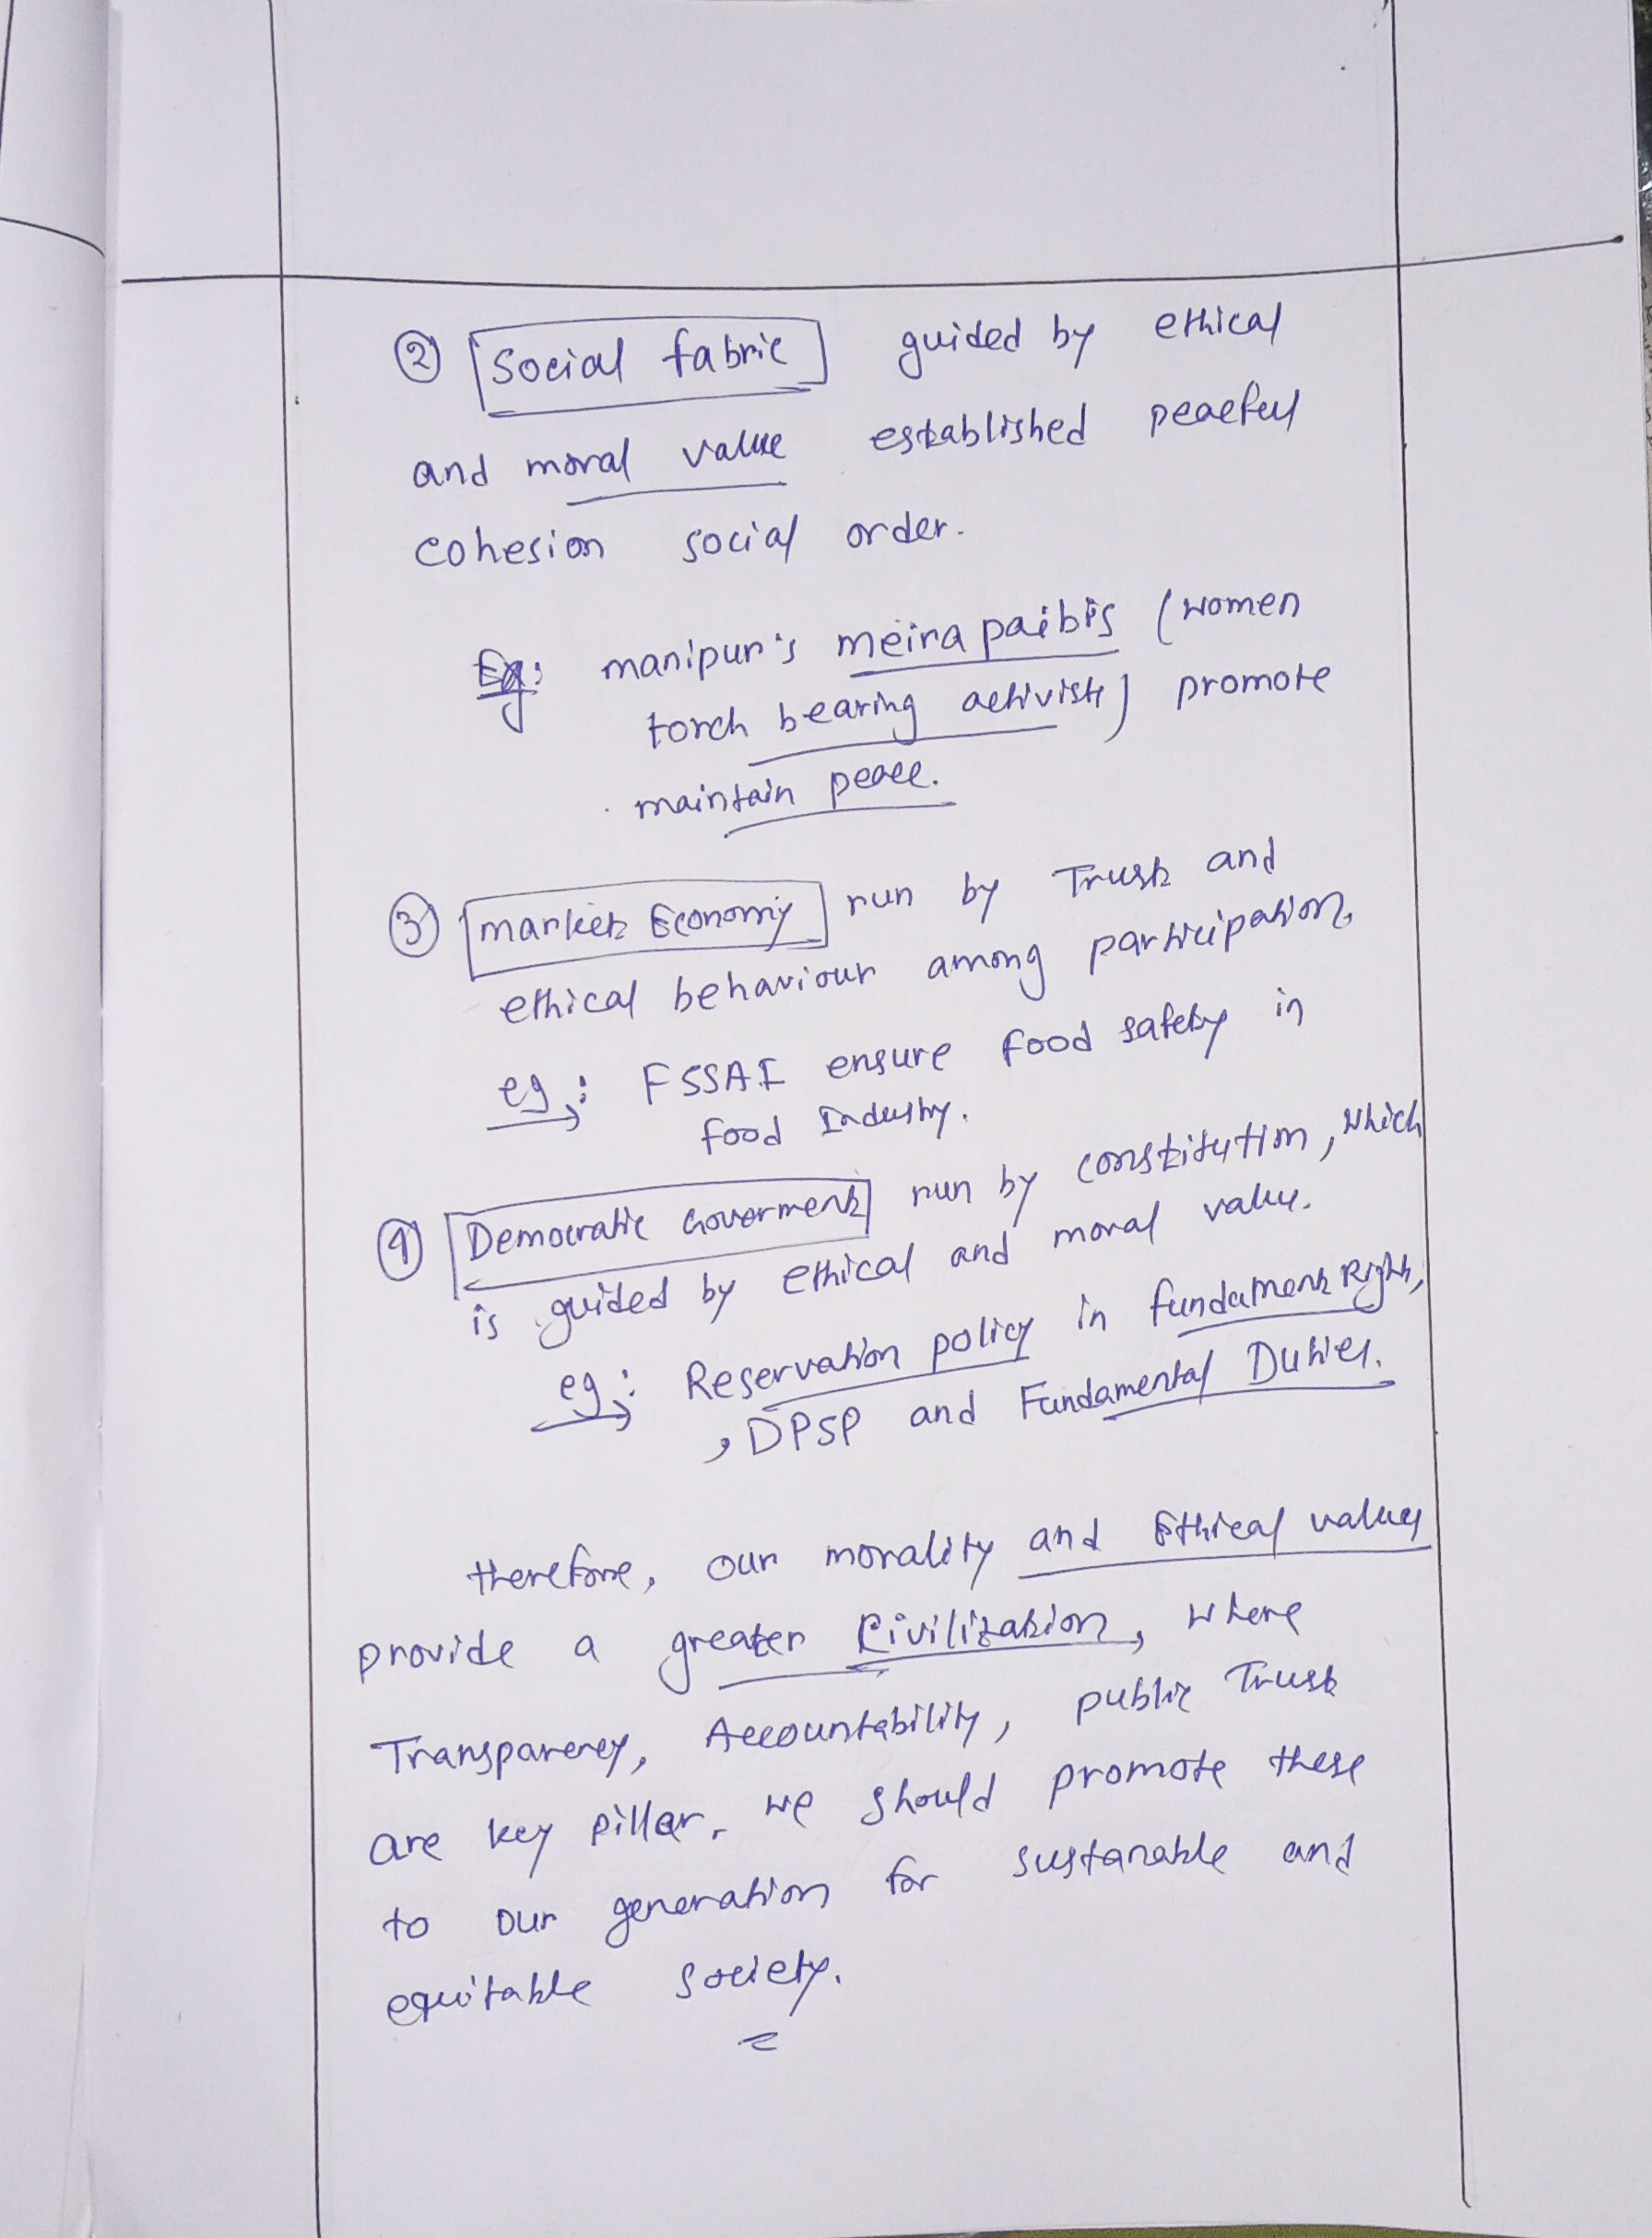 ② Social fabric guided by ethical
and moral value established peaceful
cohesion social order.
Eg: manipur's meira paibis (women
torch bearing activist) promote
maintain peace.
③ market Economy run by Trust and
ethical behaviour among participation
eg: FSSAI ensure food safety in
food Industry.
④ Democratic Goverment run by constitution, which
is guided by ethical and moral value.
eg: Reservation policy in fundament Rights,
, DPSP and Fundamental Duties.
therefore, our morality and Ethical values
provide a greater Civilization, where
Transparency, Accountability, public Trust
are key pillar, we should promote these
to our generation for sustanable and
equitable society.